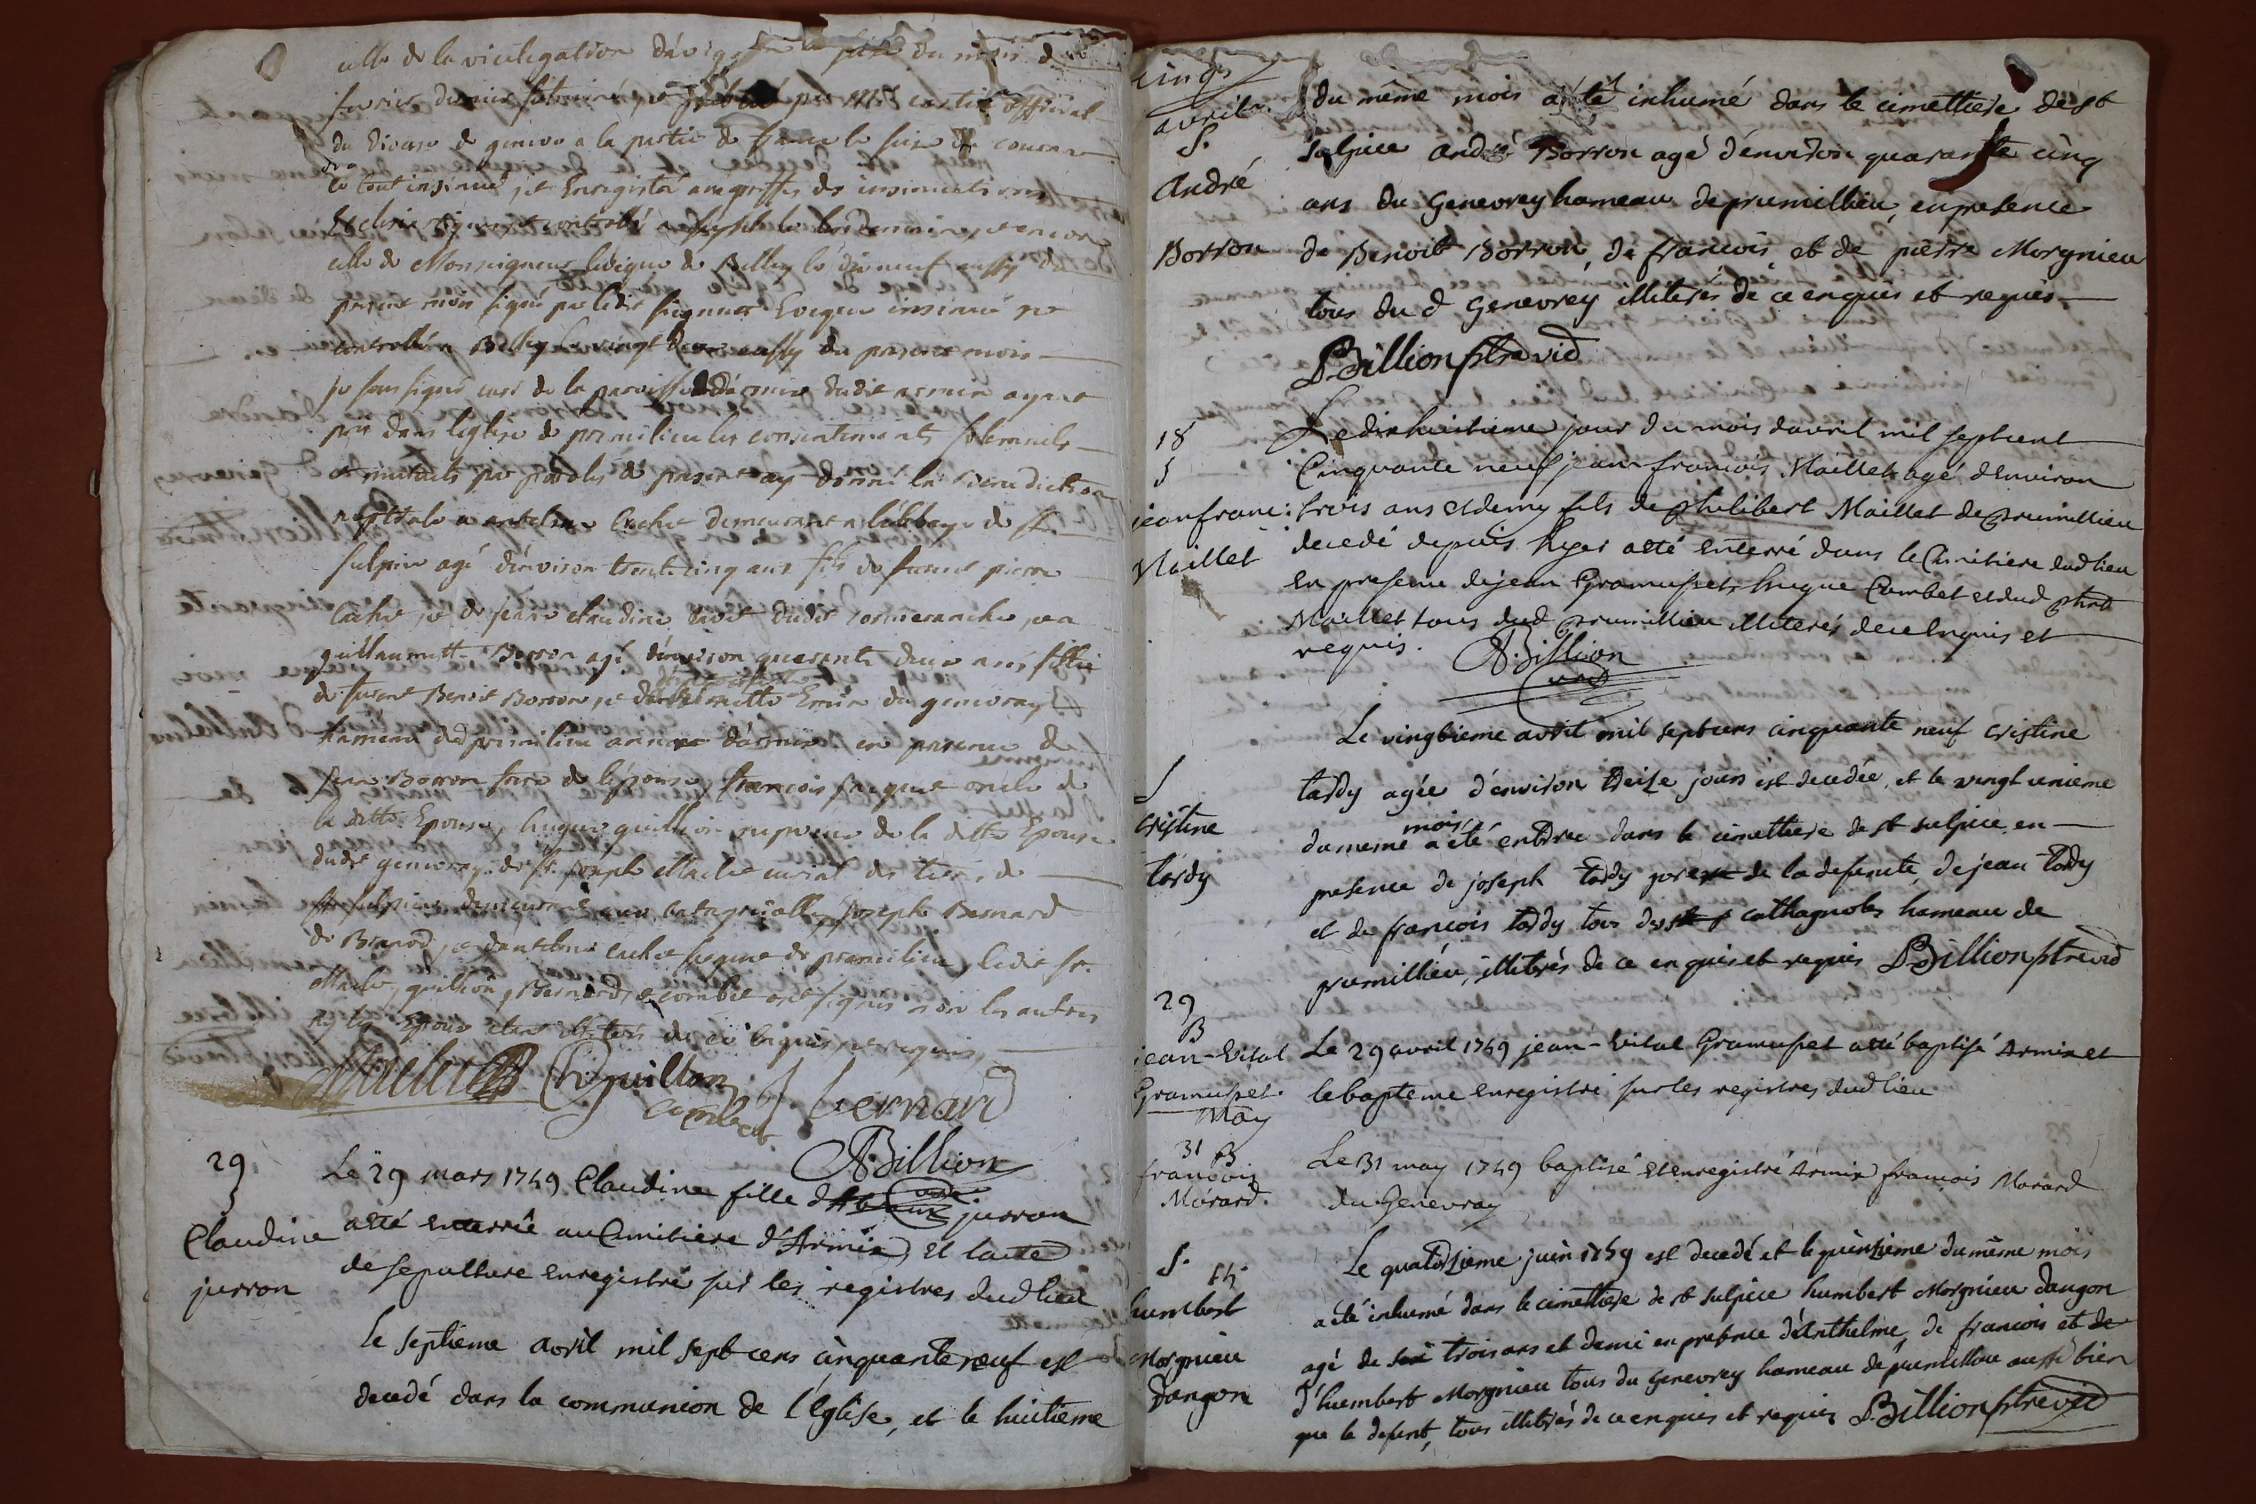 celle de la vicelegation d'avignon du mois de
fevrier dernier par Mr official
du diocese de geneve a la partie de france le seize du courant
le tout insinué et Enregistré au greffe des insinuations
Ecclesiastiques et controllé le lendemain, et encore
celle de Monseigneur leveque de Belley le dix neuf aussy du
present mois signé par ledit seigneur Eveque insinué et
controllé a Belley le vingt deux aussy du present mois
je soussigné curé de la paroisse d'armix dudit armix ayant
pris dans l'eglise de premilieu les consentements solemnels
et mutuels par paroles de present ay donné la benediction
nuptiale a antelme cachet demeurant a l'abbaye de st
sulpice agé d'environ trente cinq ans fils de feu pierre
cachet et de jeane claudine dudit cormeranche, et a
guillaumette Borron agé d'environ quarante deux ans fillie
de furent Benoit Borron, et du genevray
hameau de premilieu annexe d'armix en presence de
jean Borron frere de l'épouse, francois oncle de
la ditte Epouse, hugue guillion de la ditte Epouse
dudit genevray, de sr. joseph Maclet curial des terres de
st sulpice demeurant aux catagnolles, joseph Bernard
de Brenod, et d'antelme cachet de premilieu, ledit sr.
Maclet, guillion, Bernard, et combet ont signés non les autres
ny les Epoux etant illiterés de ce enquis et requis,
Maclet Guillon
combet J bernard
A. Billion
curé
29
S
Claudine
jurron
Le 29 mars 1759 Claudine fille d' jurron
a eté enterrée au Cimitiere d'Armix et lacte
de sepulture enregistré sur les registres dud lieu
Le septieme avril mil sept cens cinquante neuf est
decedé dans la communion de l'Eglise, et le huitieme
avril
S.
André
Borron
du même mois a été inhumé dans le cimettiere de st
sulpice andré Borron agé d'environ quarante cinq
ans du Genevrey hameau de premillieu, en presence
de Benoit Borron, de francois et de pierre Morgnieu
tous du d Genevrey illiterés de ce enquis et requis
P. Billion ptre vic
18
S
jean franc:
Maillet
Le dix huitieme jour du mois davril mil septcent
Cinquante neuf jean francois Maillet agé denviron
trois ans et demy fils de philibert Maillet de premillieu
decedé depuis hyer a eté enterré dans le Cimitiere dud lieu
en presence de jean Gramusset, hugue Combet et dud phtt
Maillet tous dud premillieu illiterés de ce enquis et
requis. A. Billion
curé
S
cristine
tardy
Le vingtieme avril mil sept cens cinquante neuf cristine
tardy agée d'environ treize jours est decedée, et le vingt unieme
du meme mois a eté enterrée dans le cimettiere de st sulpice en
presence de joseph tardy pere de la defunte, de jean tardy
et de francois tardy tous des cathagnoles hameau de
premillieu, illiterés de ce enquis et requis P. Billion ptre vic
29
B
jean-vital
Gramusset
Le 29 avril 1759 jean-vital Gramusset a eté baptisé Armix et
le bapteme enregistré sur les registres dud lieu
May
31 B
francois
Morard
Le 31 may 1759 baptisé et enregistré Armix francois Morard
du Genevray
S.
humbert
Morgnieu
dangon
Le quatorzieme juin 1759 est decedé et le quinzieme du même mois
a eté inhumé dans le cimettiere de st sulpice humbert Morgnieu dangon
agé de trois ans et demi en presence d'Anthelme, de francois et de
d'humbert Morgnieu tous du Genevrey hameau de premillieu aussi bien
que le defunt, tous illiterés de ce enquis et requis P. Billion ptre vic